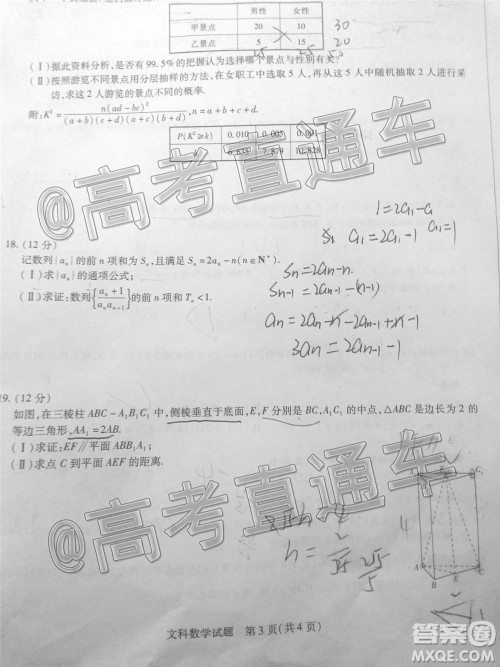 男性 女性
甲景点 20 10 30
乙景点 5 15 20
(Ⅰ)据此资料分析,是否有 99.5%的把握认为选择哪个景点与性别有关?
(Ⅱ)按照游览不同景点用分层抽样的方法,在女职工中选取 5 人,再从这 5 人中随机抽取 2 人进行采
访,求这 2 人游览的景点不同的概率.
附:K²=n(ad-bc)²/((a+b)(c+d)(a+c)(b+d)),n=a+b+c+d
P(K²≥k) 0.010 0.005 0.001
6.635 7.879 10.828
@高考直通车
1=2a₁-a₁
a₁=2a₁-1 a₁=1
18.(12 分)
记数列{aₙ}的前 n 项和为 Sₙ,且满足 Sₙ=2aₙ-n(n∈N*)
(Ⅰ)求{aₙ}的通项公式;
(Ⅱ)求证:数列{(aₙ+1)/(aₙaₙ₊₁)}的前 n 项和 Tₙ<1.
Sₙ=2aₙ-n.
Sₙ₋₁=2aₙ₋₁-(n-1)
aₙ=2aₙ-n-2aₙ₋₁+n-1
3aₙ=2aₙ₋₁-1
19.(12 分)
如图,在三棱柱 ABC-A₁B₁C₁ 中,侧棱垂直于底面,E,F 分别是 BC,A₁C₁ 的中点,△ABC 是边长为 2 的
等边三角形,AA₁=2AB.
(Ⅰ)求证:EF∥平面 ABB₁A₁;
(Ⅱ)求点 C 到平面 AEF 的距离.
@高考直通车
4
A B E C
文科数学试题 第 3 页(共 4 页)
答案圈
MXQE.COM